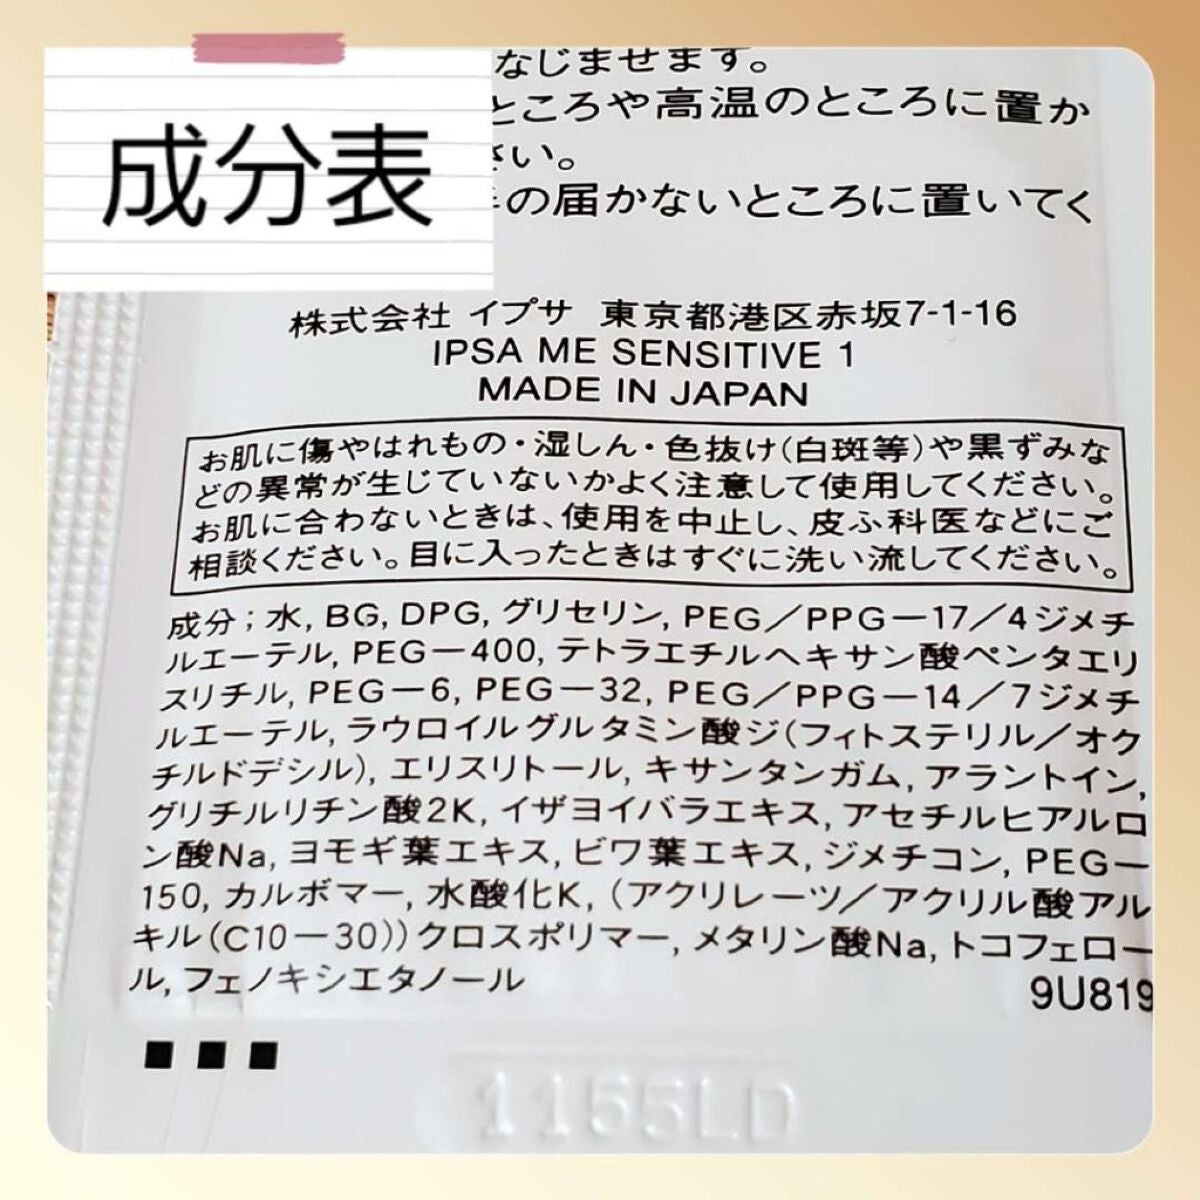 成分表
なじませます。
ところや高温のところに置か
さい。
の届かないところに置いてく
株式会社 イプサ 東京都港区赤坂7-1-16
IPSA ME SENSITIVE 1
MADE IN JAPAN
お肌に傷やはれもの・湿しん・色抜け(白斑等)や黒ずみな
どの異常が生じていないかよく注意して使用してください。
お肌に合わないときは、使用を中止し、皮ふ科医などにご
相談ください。目に入ったときはすぐに洗い流してください。
成分；水, BG, DPG, グリセリン, PEG／PPG－17／4ジメチ
ルエーテル, PEG－400, テトラエチルヘキサン酸ペンタエリ
スリチル, PEG－6, PEG－32, PEG／PPG－14／7ジメチ
ルエーテル, ラウロイルグルタミン酸ジ(フィトステリル／オク
チルドデシル), エリスリトール, キサンタンガム, アラントイン,
グリチルリチン酸2K, イザヨイバラエキス, アセチルヒアルロ
ン酸Na, ヨモギ葉エキス, ビワ葉エキス, ジメチコン, PEG－
150, カルボマー, 水酸化K, (アクリレーツ／アクリル酸アル
キル(C10－30))クロスポリマー, メタリン酸Na, トコフェロー
ル, フェノキシエタノール
9U819
1155LD